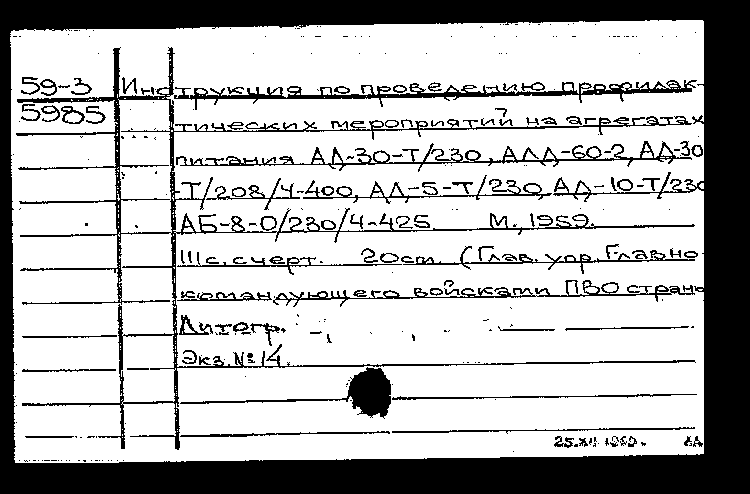 59-3 Инструкция по проведению профилак-
5985 тических мероприятий на агрегатах
питания АД-30-Т/230, АЛД-60-2, АД-30
-Т/208/Ч-400, АД-5-Т/230, АД-10-Т/230
АБ-8-О/230/Ч-425. М., 1959.
111с. с черт. 20см. (Глав. упр. Главно-
командующего войсками ПВО страны
Литогр.
Экз. № 14.
25.XII 1959.